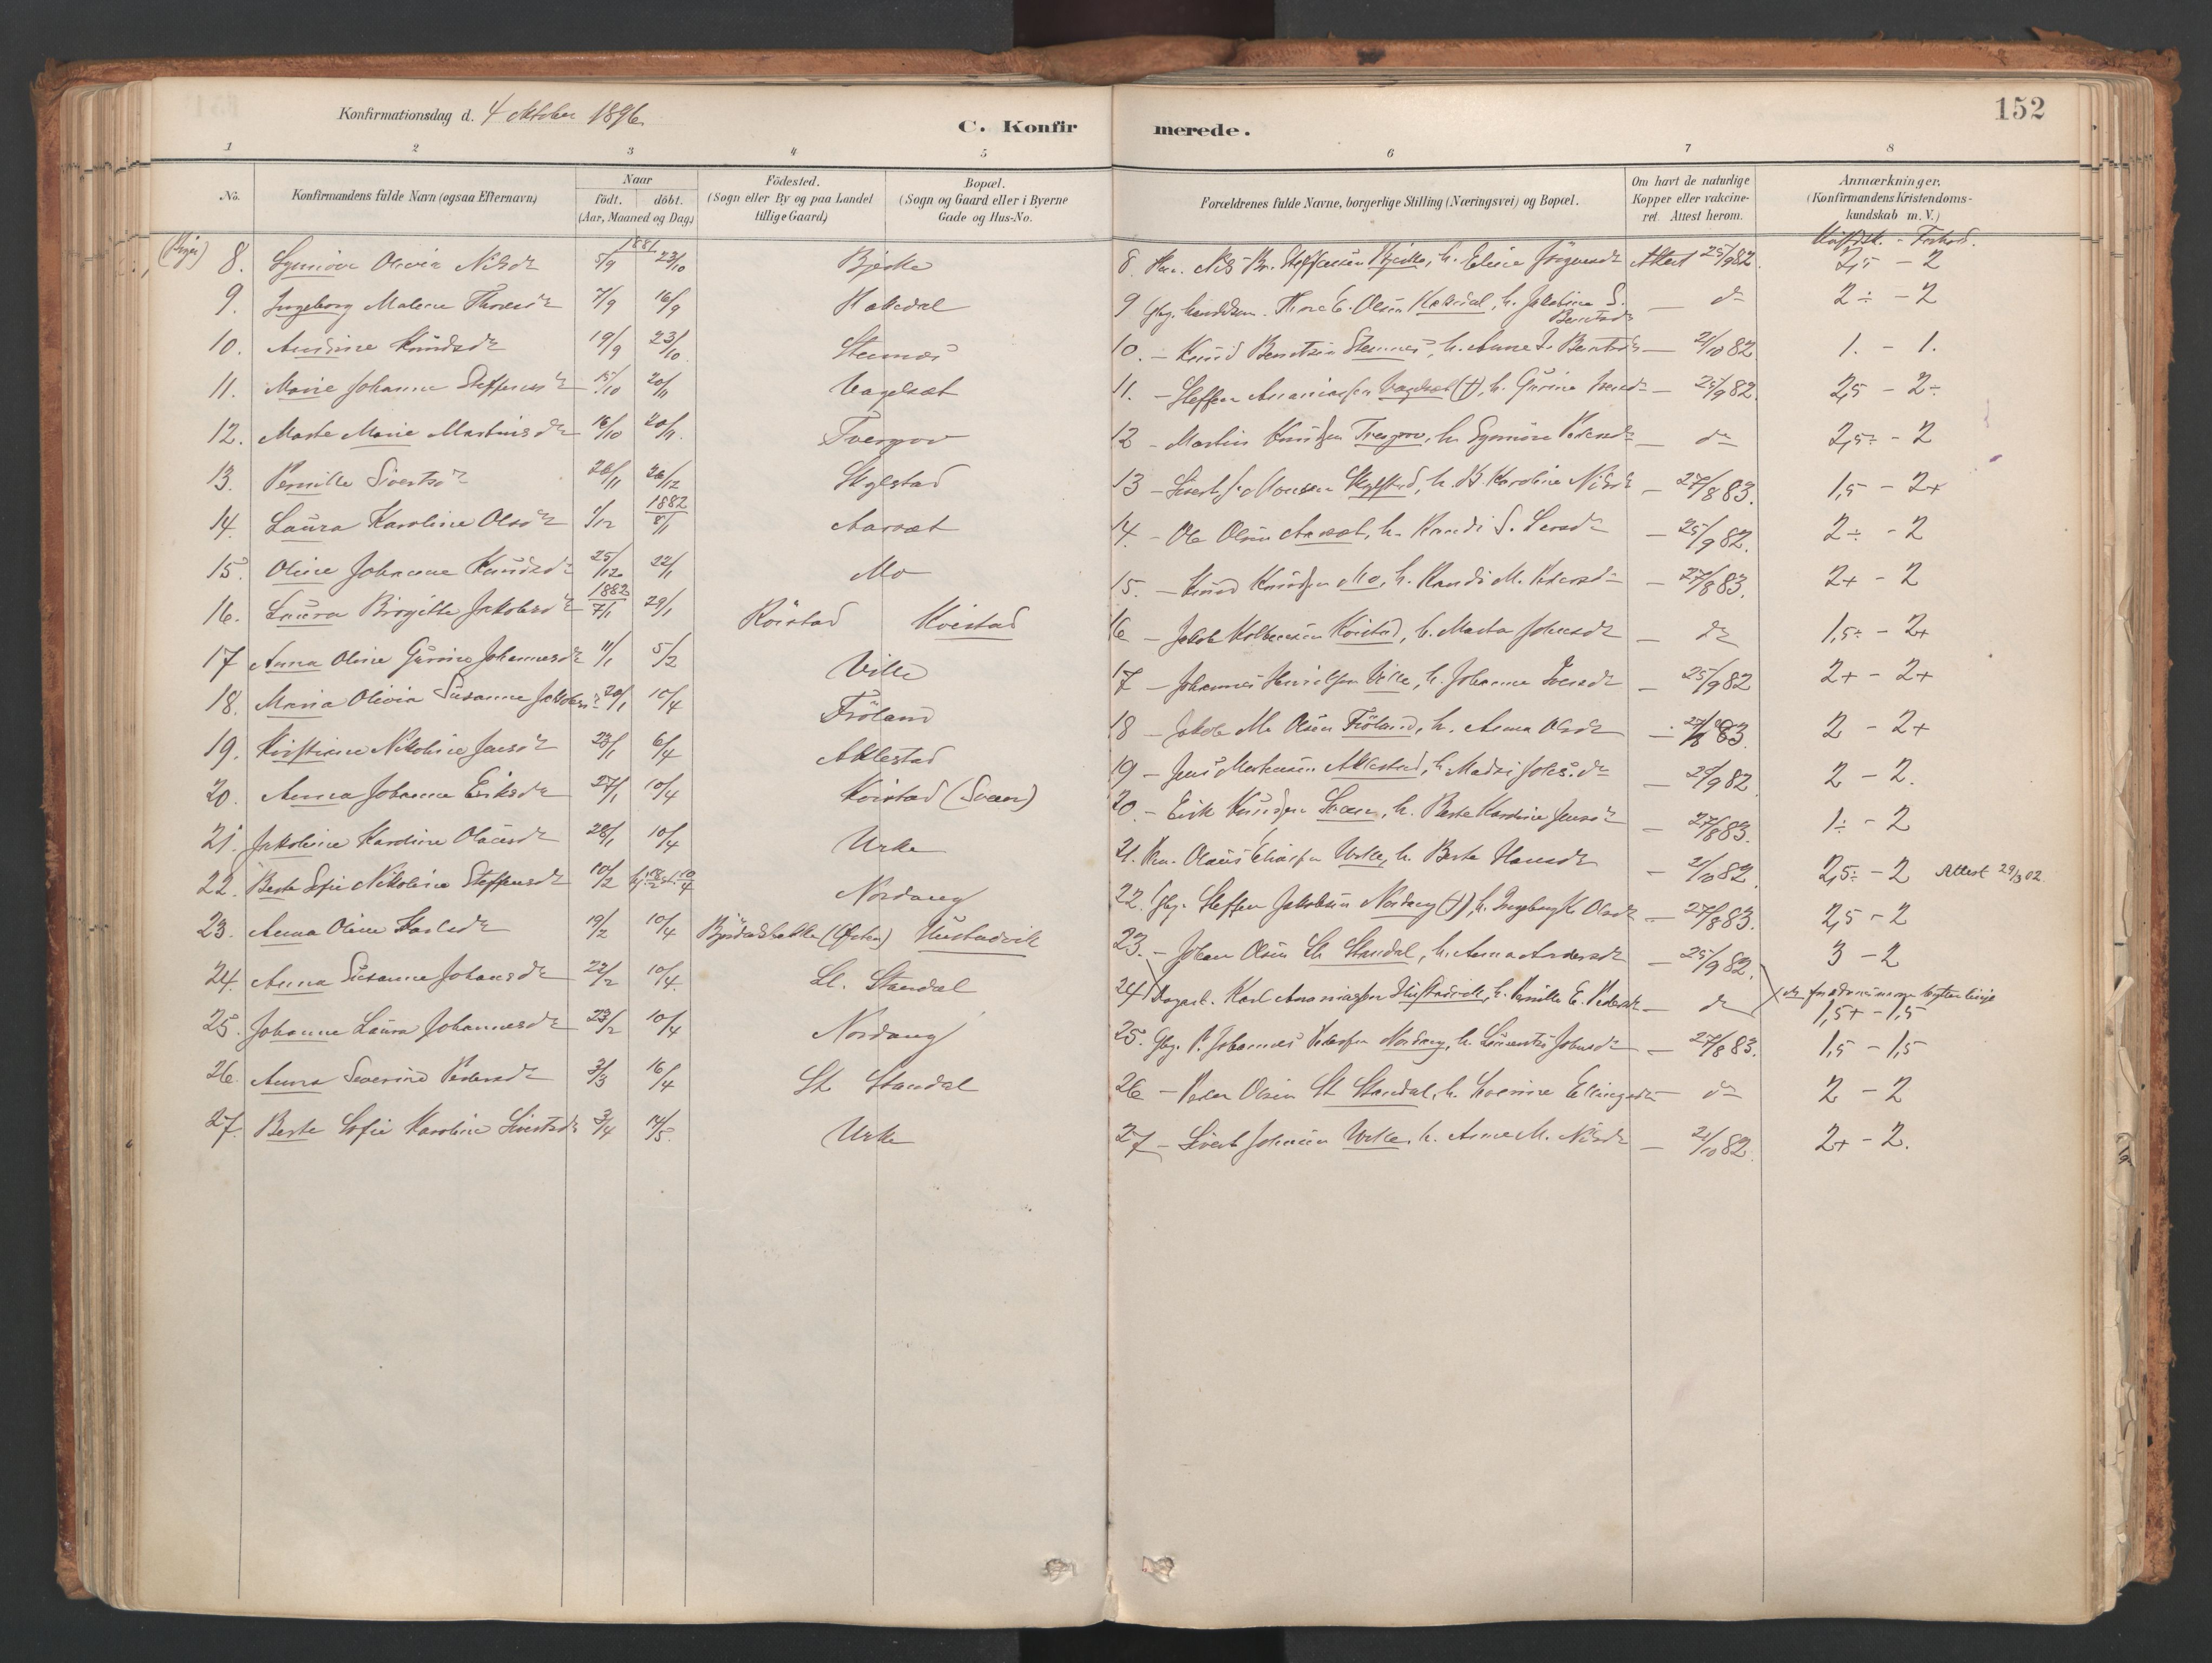 Konfirmationsdag d. 4 oktober 1896.
C. Konfirmerede.
152
1 2 3 4 5 6 7 8
No.
Konfirmandens fulde Navn (ogsaa Efternavn)
Naar
födt. döbt.
(Aar, Maaned og Dag)
Födested.
(Sogn eller By og paa Landet
tillige Gaard)
Bopæl.
(Sogn og Gaard eller i Byerne
Gade og Hus-No.
Forældrenes fulde Navne, borgerlige Stilling (Næringsvei) og Bopæl.
Om havt de naturlige
Kopper eller vakcine-
ret Attest herom.
Anmærkninger.
(Konfirmandens Kristendoms-
kundskab m. V.)
(Piger) 8. Synnöve Olivia Nilsdr 1881 5/9 23/10 Bjerke 8. Nils Br. Steffensen Bjerke, h. Eline Jörgensdr Attest 25/9 82. 2,5 - 2
9. Ingeborg Malene Thoresdr 7/9 16/9 Hakedal 9 Olsen Hakedal, h. Jakobine S. Berntsdr — do 2÷ - 2
10. Andrine Knudsdr 19/9 23/10 Stennes 10. — Knud Berntsen Stennes, h. Anne Berntsdr — 2/10 82. 1. - 1.
11. Marie Johanne Steffensdr 15/10 20/11 Vagelsæt 11. — Steffen Ananiassen Vagelsæt (†), h. Gurine Iversdr — 25/9 82. 2,5 - 2÷
12. Marte Marie Martinusdr 16/10 20/11. Tvergrov 12 — Martin Knudsen Tvergrov, h. Synnöve Pedersdr — do 2,5÷ - 2
13. Pernille Sivertsdr 20/11 26/12 Skylstad 13 — Sivert Monsen Skylstad, h. Karoline Nilsdr — 27/8 83. 1,5 - 2+
14. Laura Karoline Olsdr 4/12 1882 8/1 Aarsæt 14. — Ole Olsen Aarsæt, h. Randi S. Larsdr — 25/9 82. 2÷ - 2
15. Oline Johanne Knudsdr 25/12 22/1 Mo 15. — Knud Knudsen Mo, h. Randi M. Pedersdr — 27/8 83. 2+ - 2
16. Laura Birgitte Jakobsdr 1882 7/1 29/1 Röistad Kvistad 16 — Jakob Kolbensen Kvistad, h. Marta Johnsdr — do 1,5÷ - 2+
17 Anna Oline Gurine Johannesdr 11/1 5/2 Ville 17 — Johannes Henriksen Ville, h. Johanne Iversdr — 25/9 82 2+ - 2+
18. Maria Olivia Susanne Jakobsdr 20/1 10/4 Fröland 18 — Jakob M. Olsen Fröland, h. Anna Olsdr — 27/8 83. 2 - 2+
19. Kristiane Nikoline Jensdr 23/1 6/4 Aklestad 19 — Jens Markussen Aklestad, h. Madsi — 25/9 82. 2 - 2.
20. Anna Johanne Eriksdr 27/1 10/4 Kvistad (Svær) 20. — Erik Knudsen, h. Berte Karoline Jensdr — 27/8 83. 1÷ - 2
21. Jakobine Karoline Olausdr 28/1 10/4 Urke 21. Olaus Eliassen Urke, h. Berte Hansdr — 2/10 82. 2,5÷ - 2 Attest 29/3 02.
22. Berte Sofie Nikoline Steffensdr 10/2 Nordang 22. Gbg. Steffen Jakobsen Nordang (†), h. Ingeborg K. Olsdr — 27/8 83. 2,5 - 2
23. Anna Oline Karlsdr 19/2 10/4 Björdalsbakke (Örsten) Hustadvik 23. — Johan Olsen St. Standal, h. Anna Andersdr — 25/9 82. 3 - 2
24. Anna Susanne Johansdr 22/2 10/4. St. Standal 24 Dagarb. Karl Ananiassen Hustadvik, h. Pernille E. Pedersdr — do 1,5+ - 1,5
25. Johanne Laura Johannesdr 23/2 10/4 Nordang 25. Gbg. P. Johannes Pedersen Nordang, h. Laurentse Johnsdr — 27/8 83. 1,5 - 1,5
26. Anna Severine Pedersdr 3/3 16/4 St. Standal 26 — Peder Olsen St. Standal, h. Ellingsdr — do 2 - 2
27. Berte Sofie Karoline Sivertsdr 3/4 14/5. Urke 27 — Sivert Johnsen Urke, h. Anne M. Nilsdr — 2/10 82. 2+ - 2.